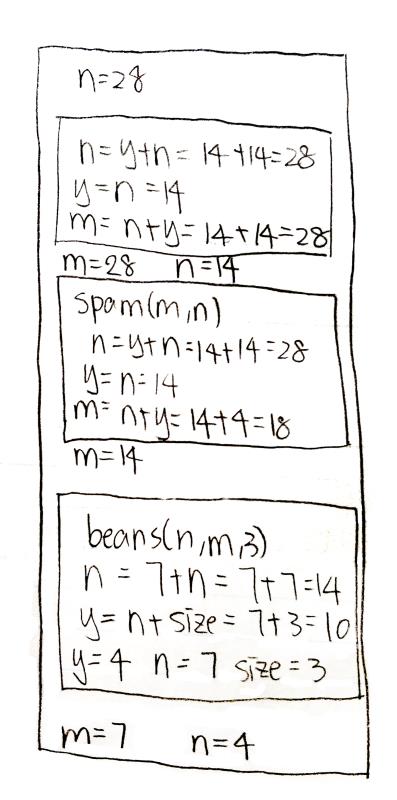 n=28
n=y+n= 14+14=28
y=n=14
m= n+y=14+14=28
m=28 n=14
spam(m,n)
n=y+n=14+14=28
y=n=14
m= n+y=14+4=18
m=14
beans(n,m,3)
n = 7+n = 7+7=14
y=n+size= 7+3=10
y=4 n=7 size=3
m=7 n=4